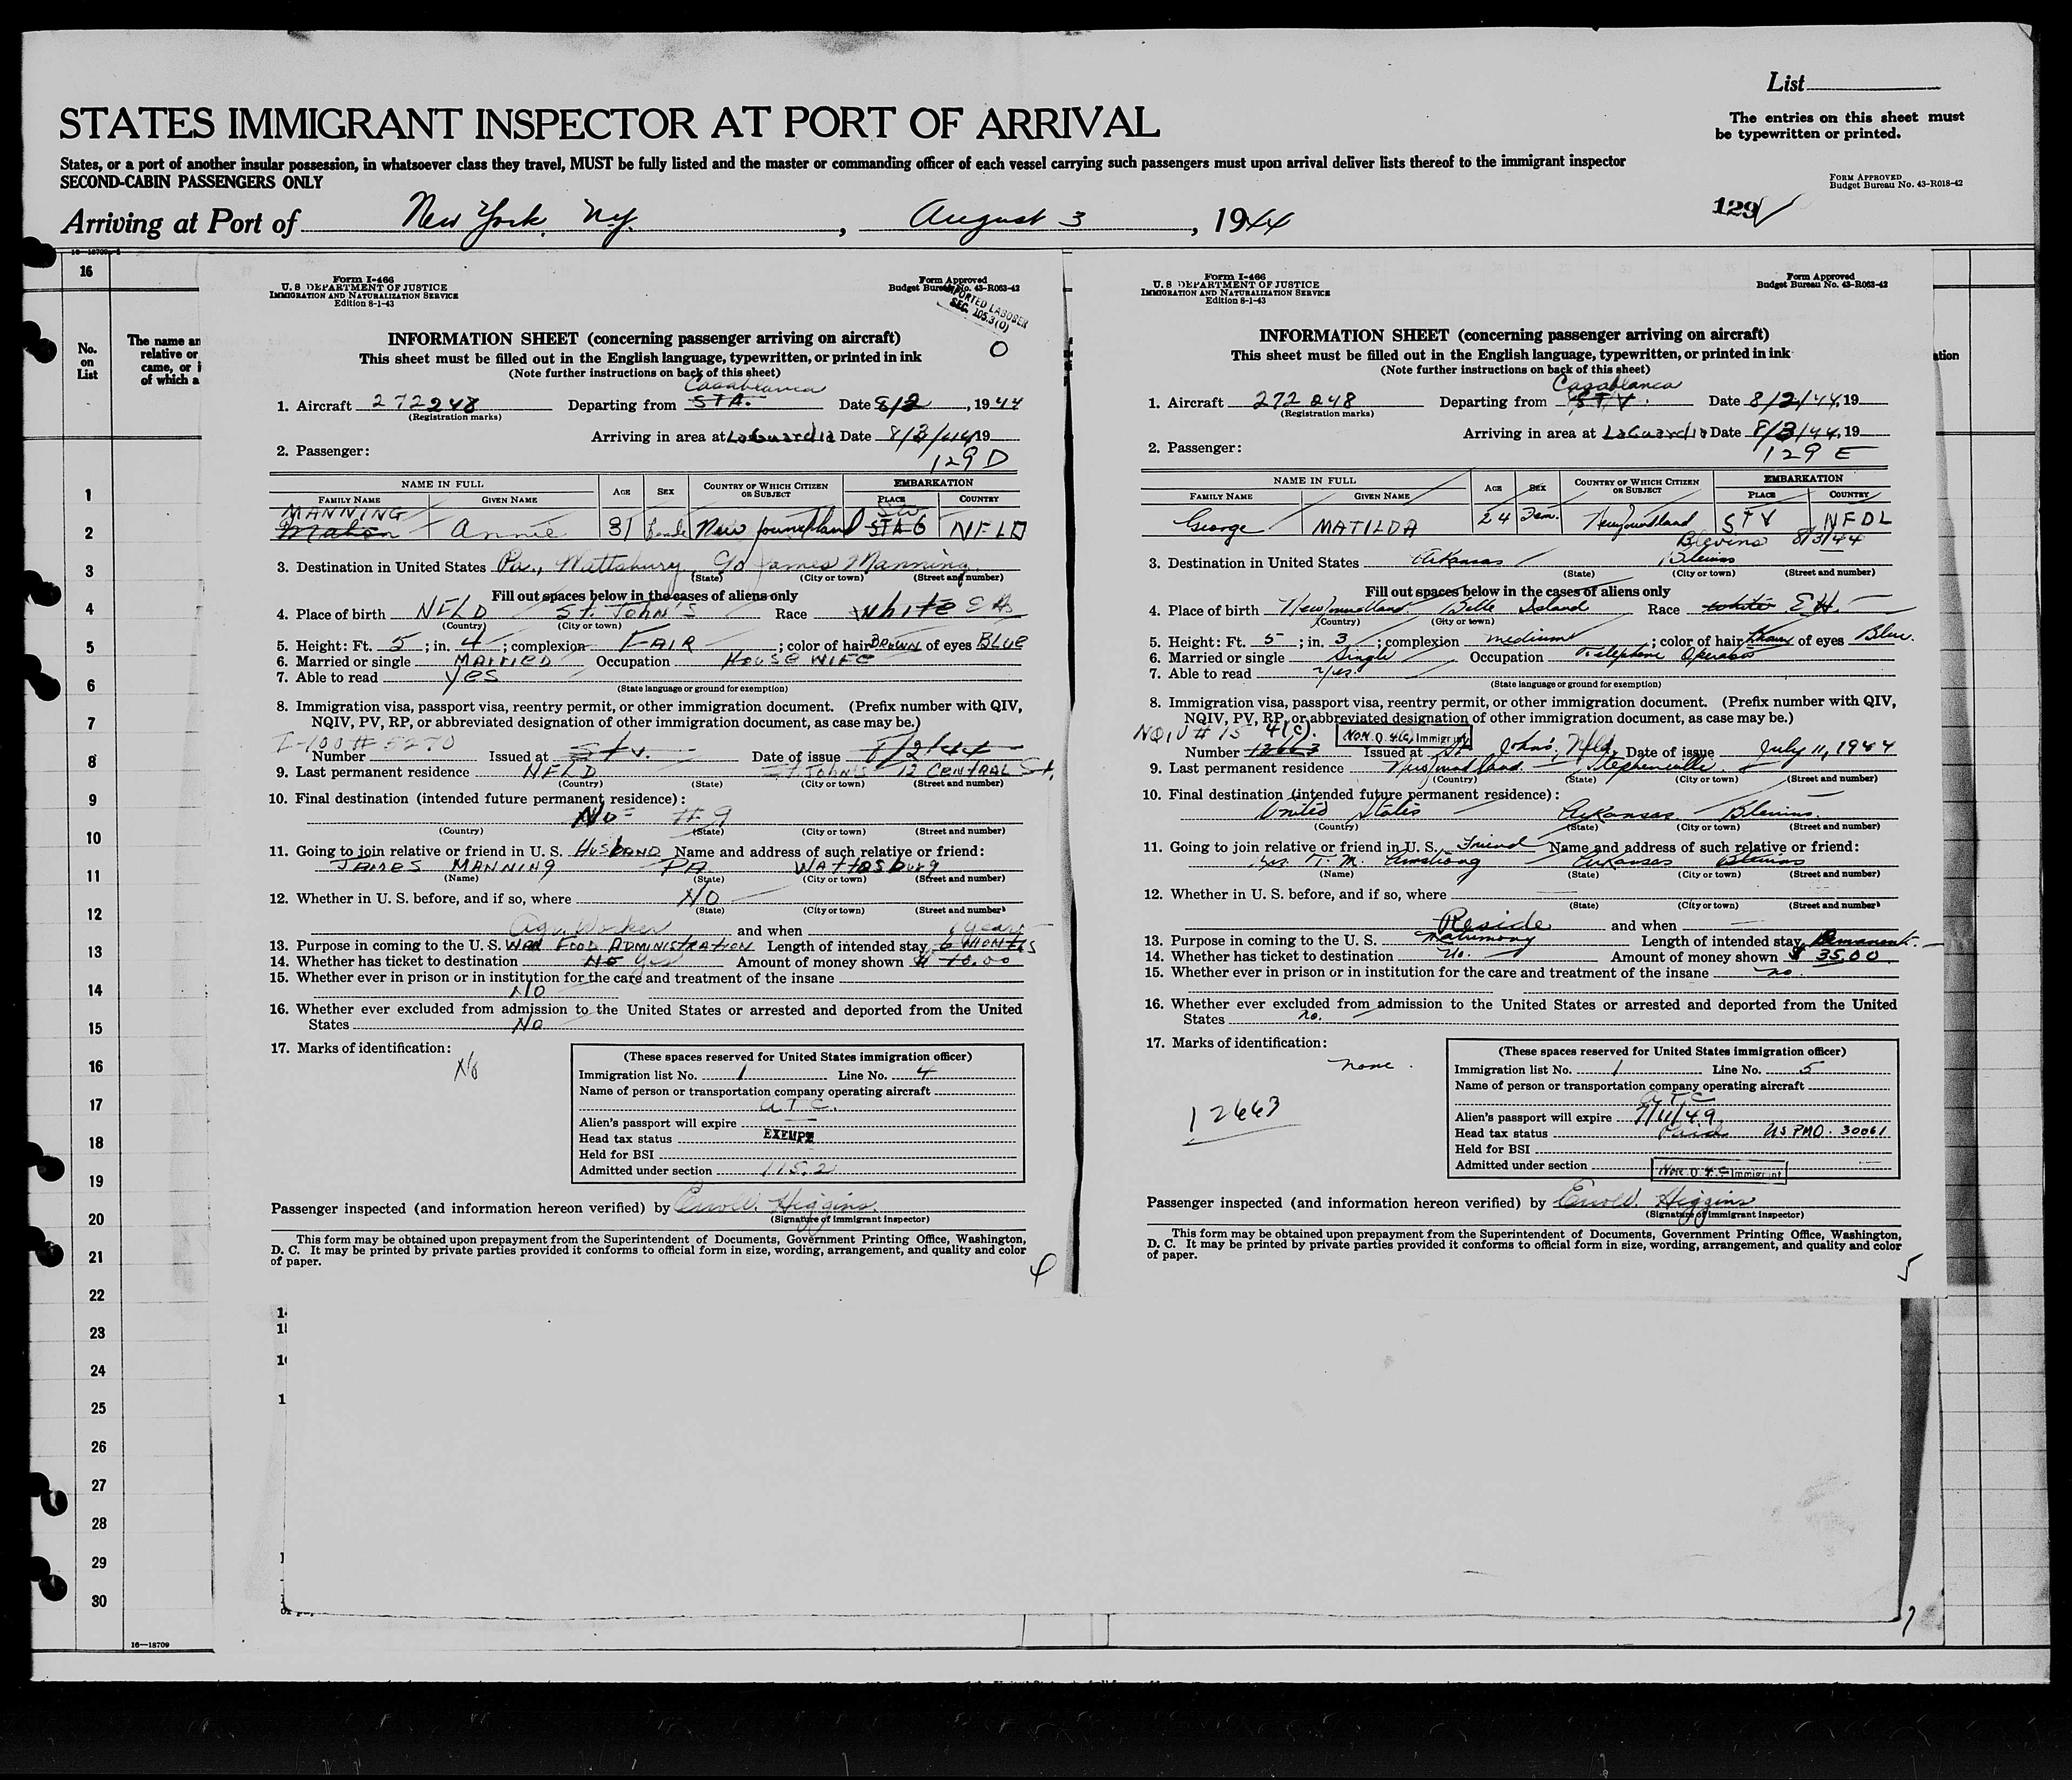 List
STATES IMMIGRANT INSPECTOR AT PORT OF ARRIVAL
The entries on this sheet must
be typewritten or printed.
States, or a port of another insular possession, in whatsoever class they travel, MUST be fully listed and the master or commanding officer of each vessel carrying such passengers must upon arrival deliver lists thereof to the immigrant inspector
SECOND-CABIN PASSENGERS ONLY
Form Approved
Budget Bureau No. 43-R018-42
129
Arriving at Port of New York, N.Y., August 3, 1944
16
No.
on
List
The name an
relative or
came, or i
of which a
1
2
3
4
5
6
7
8
9
10
11
12
13
14
15
16
17
18
19
20
21
22
23
24
25
26
27
28
29
30
16—18709
Form I-466
U. S DEPARTMENT OF JUSTICE
Immigration and Naturalization Service
Edition 8-1-43
Form Approved
Budget Bureau No. 43-R063-42
IMPORTED LABORER
SEC. 105.3(O)
O
INFORMATION SHEET (concerning passenger arriving on aircraft)
This sheet must be filled out in the English language, typewritten, or printed in ink
(Note further instructions on back of this sheet)
Casablanca
1. Aircraft 272248 Departing from STA. Date 8/2, 1944
(Registration marks)
Arriving in area at LaGuardia Date 8/3/44, 19
2. Passenger:
129 D
NAME IN FULL Age Sex Country of Which Citizen or Subject EMBARKATION
Family Name Given Name Place Country
MANNING
Annie 31 Newfoundland NFLD
3. Destination in United States Pa., Wattsburg, c/o James Manning
(State) (City or town) (Street and number)
Fill out spaces below in the cases of aliens only
4. Place of birth NFLD St. John's Race White
(Country) (City or town)
5. Height: Ft. 5; in. 4; complexion FAIR; color of hair BROWN of eyes BLUE
6. Married or single MARRIED Occupation HOUSE WIFE
7. Able to read yes
(State language or ground for exemption)
8. Immigration visa, passport visa, reentry permit, or other immigration document. (Prefix number with QIV,
NQIV, PV, RP, or abbreviated designation of other immigration document, as case may be.)
I-100 # 5270
Number Issued at Stv. Date of issue 8/2/44
9. Last permanent residence NFLD St. John's 12 CENTRAL St.
(Country) (State) (City or town) (Street and number)
10. Final destination (intended future permanent residence):
No = #9
(Country) (State) (City or town) (Street and number)
11. Going to join relative or friend in U. S. HUSBAND Name and address of such relative or friend:
JAMES MANNING PA WATTSBURG
(Name) (State) (City or town) (Street and number)
12. Whether in U. S. before, and if so, where NO
(State) (City or town) (Street and number)
Agr. Worker and when 1 year
13. Purpose in coming to the U. S. WAR FOOD ADMINISTRATION Length of intended stay 6 MONTHS
14. Whether has ticket to destination NO Yes Amount of money shown $ 10.00
15. Whether ever in prison or in institution for the care and treatment of the insane
NO
16. Whether ever excluded from admission to the United States or arrested and deported from the United
States NO
17. Marks of identification:
No
(These spaces reserved for United States immigration officer)
Immigration list No. 1 Line No. 4
Name of person or transportation company operating aircraft
A.T.C.
Alien's passport will expire
Head tax status EXEMPT
Held for BSI
Admitted under section 115.2
Passenger inspected (and information hereon verified) by Errol D. Higgins
(Signature of immigrant inspector)
This form may be obtained upon prepayment from the Superintendent of Documents, Government Printing Office, Washington,
D. C. It may be printed by private parties provided it conforms to official form in size, wording, arrangement, and quality and color
of paper.
4
Form I-466
U. S DEPARTMENT OF JUSTICE
Immigration and Naturalization Service
Edition 8-1-43
Form Approved
Budget Bureau No. 43-R063-42
INFORMATION SHEET (concerning passenger arriving on aircraft)
This sheet must be filled out in the English language, typewritten, or printed in ink
(Note further instructions on back of this sheet)
Casablanca
1. Aircraft 272248 Departing from STV. Date 8/2/44, 19
(Registration marks)
Arriving in area at LaGuardia Date 8/3/44, 19
2. Passenger:
129 E
NAME IN FULL Age Sex Country of Which Citizen or Subject EMBARKATION
Family Name Given Name Place Country
George MATILDA 24 Fem. Newfoundland STV NFDL
Blevins 8/3/44
3. Destination in United States Arkansas Blevins
(State) (City or town) (Street and number)
Fill out spaces below in the cases of aliens only
4. Place of birth Newfoundland Belle Island Race White
(Country) (City or town)
5. Height: Ft. 5; in. 3; complexion medium; color of hair Brown of eyes Blue.
6. Married or single Single Occupation Telephone Operator
7. Able to read Yes.
(State language or ground for exemption)
8. Immigration visa, passport visa, reentry permit, or other immigration document. (Prefix number with QIV,
NQIV, PV, RP, or abbreviated designation of other immigration document, as case may be.)
NQIV # 15 4(c). NON. Q. 4(C) Immigrant
Number 12663 Issued at St. John's, Nfld. Date of issue July 11, 1944
9. Last permanent residence Newfoundland Stephenville
(Country) (State) (City or town) (Street and number)
10. Final destination (intended future permanent residence):
United States Arkansas Blevins.
(Country) (State) (City or town) (Street and number)
11. Going to join relative or friend in U. S. Friend Name and address of such relative or friend:
T. M. Armstrong Arkansas Blevins
(Name) (State) (City or town) (Street and number)
12. Whether in U. S. before, and if so, where
(State) (City or town) (Street and number)
Reside and when
13. Purpose in coming to the U. S. Matrimony Length of intended stay Permanent.
14. Whether has ticket to destination No. Amount of money shown $ 35.00
15. Whether ever in prison or in institution for the care and treatment of the insane no.
16. Whether ever excluded from admission to the United States or arrested and deported from the United
States no.
17. Marks of identification:
none.
12663
(These spaces reserved for United States immigration officer)
Immigration list No. 1 Line No. 5
Name of person or transportation company operating aircraft
A.T.C.
Alien's passport will expire 7/11/49
Head tax status Paid US PMO. 30061
Held for BSI
Admitted under section Non. Q. 4-C Immigrant
Passenger inspected (and information hereon verified) by Errol D. Higgins
(Signature of immigrant inspector)
This form may be obtained upon prepayment from the Superintendent of Documents, Government Printing Office, Washington,
D. C. It may be printed by private parties provided it conforms to official form in size, wording, arrangement, and quality and color
of paper.
5